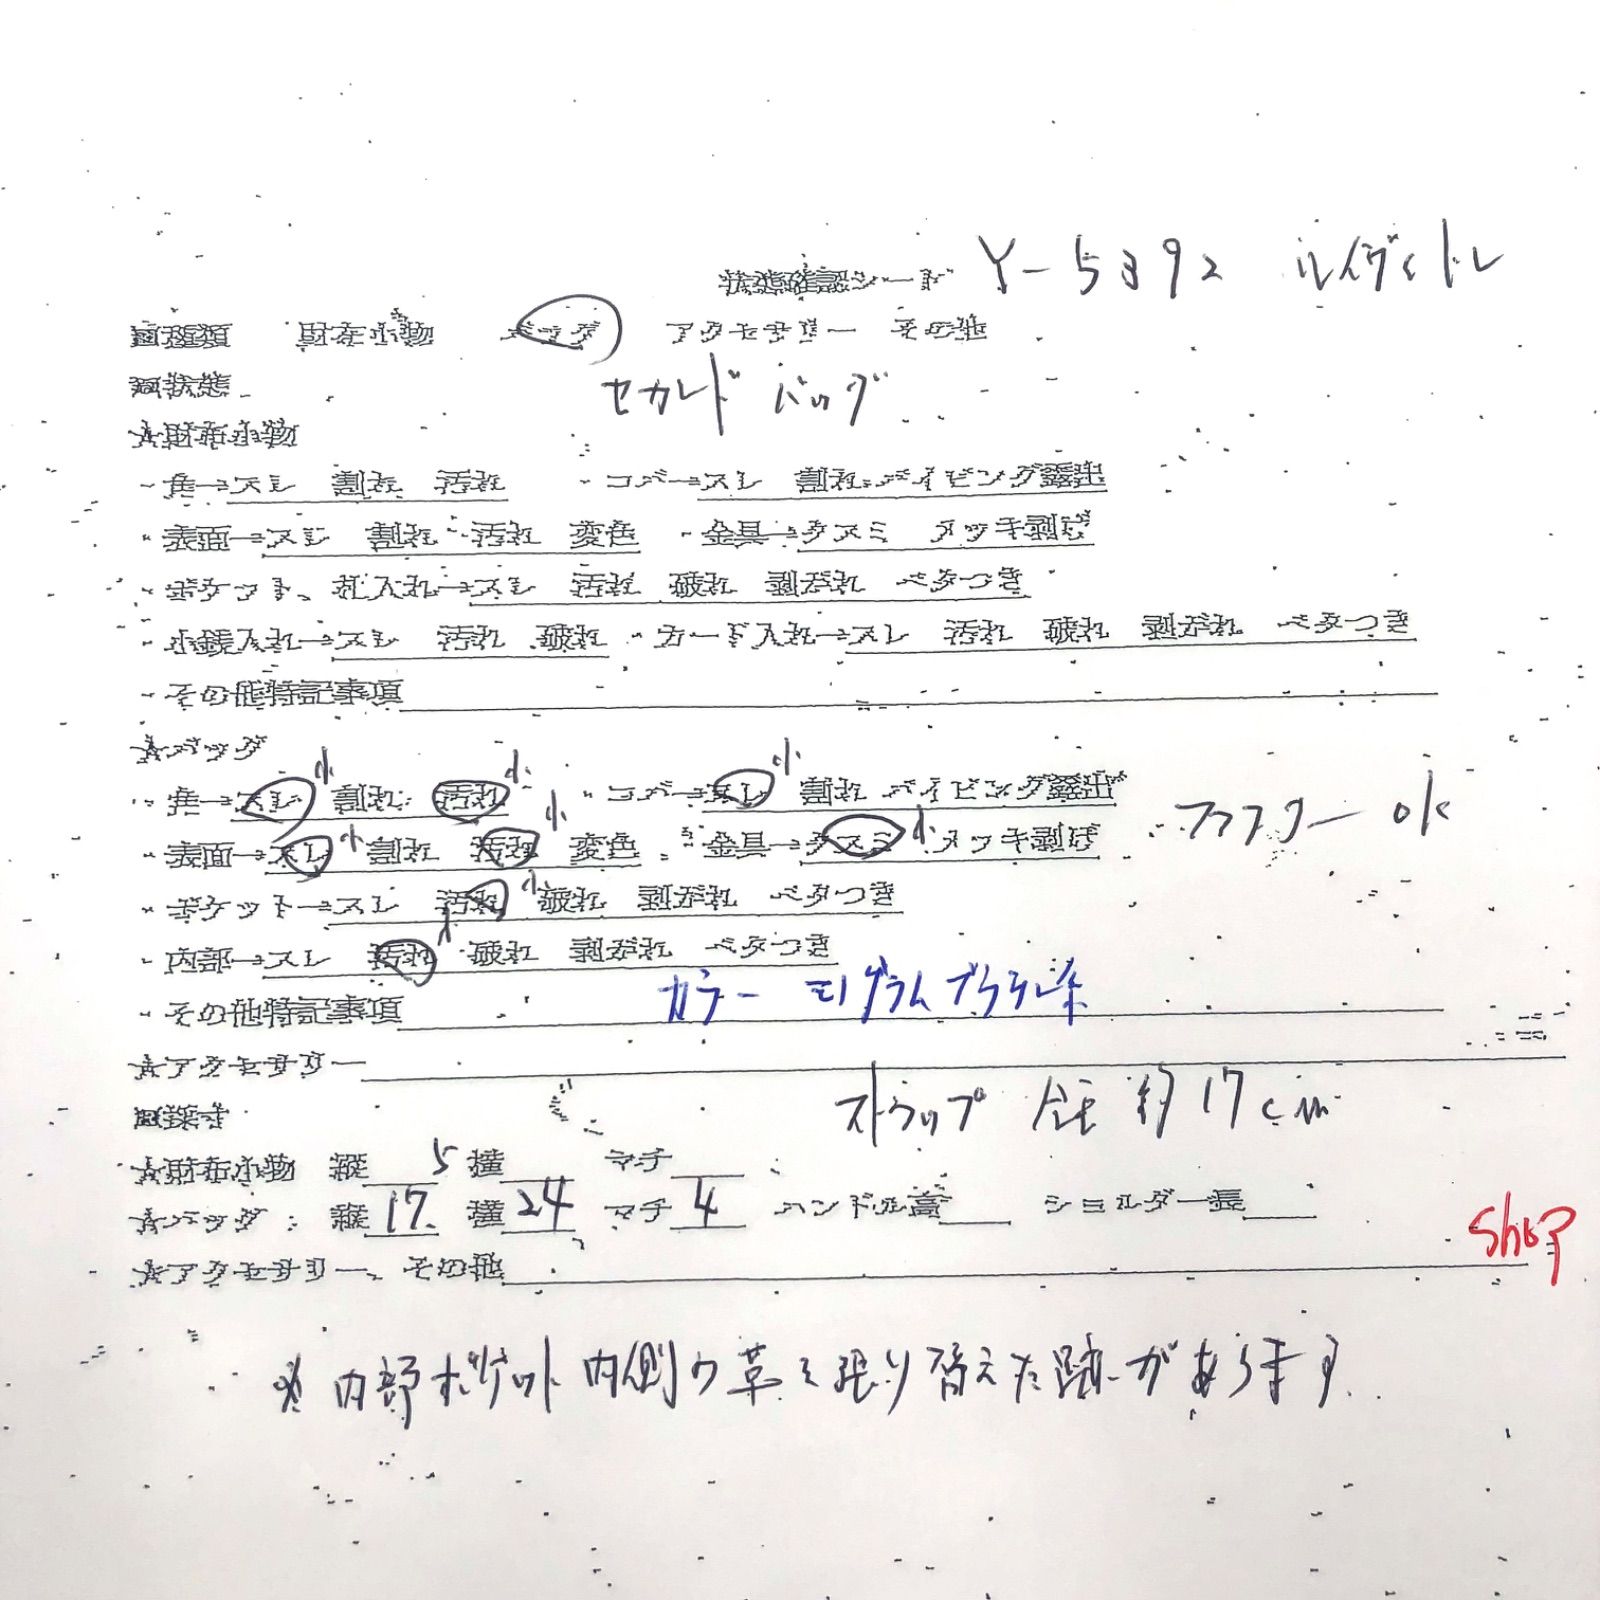 状態確認シート Y-5392 ルイヴィトン
■種類 財布小物 バッグ アクセサリー その他
■状態 セカンドバッグ
★財布小物
・角→スレ 割れ 汚れ ・コバ→スレ 割れ パイピング露出
・表面→スレ 割れ 汚れ 変色 ・金具→クスミ メッキ剥げ
・ポケット、札入れ→スレ 汚れ 破れ 剥がれ ベタつき
・小銭入れ→スレ 汚れ 破れ ・カード入れ→スレ 汚れ 破れ 剥がれ ベタつき
・その他特記事項
★バッグ
・角→スレ小 割れ 汚れ小 ・コバ→スレ小 割れ パイピング露出
・表面→スレ小 割れ 汚れ小 変色 ・金具→クスミ小 メッキ剥げ ファスナー ok
・ポケット→スレ 汚れ小 破れ 剥がれ ベタつき
・内部→スレ 汚れ小 破れ 剥がれ ベタつき
・その他特記事項 カラー モノグラムブラウン系
★アクセサリー
■採寸 ストラップ 全長 約17cm
★財布小物 縦 5 横 マチ
★バッグ 縦 17 横 24 マチ 4 ハンドル高 ショルダー長
shop
★アクセサリー、その他
※内部ポケット内側の革を張り替えた跡があります